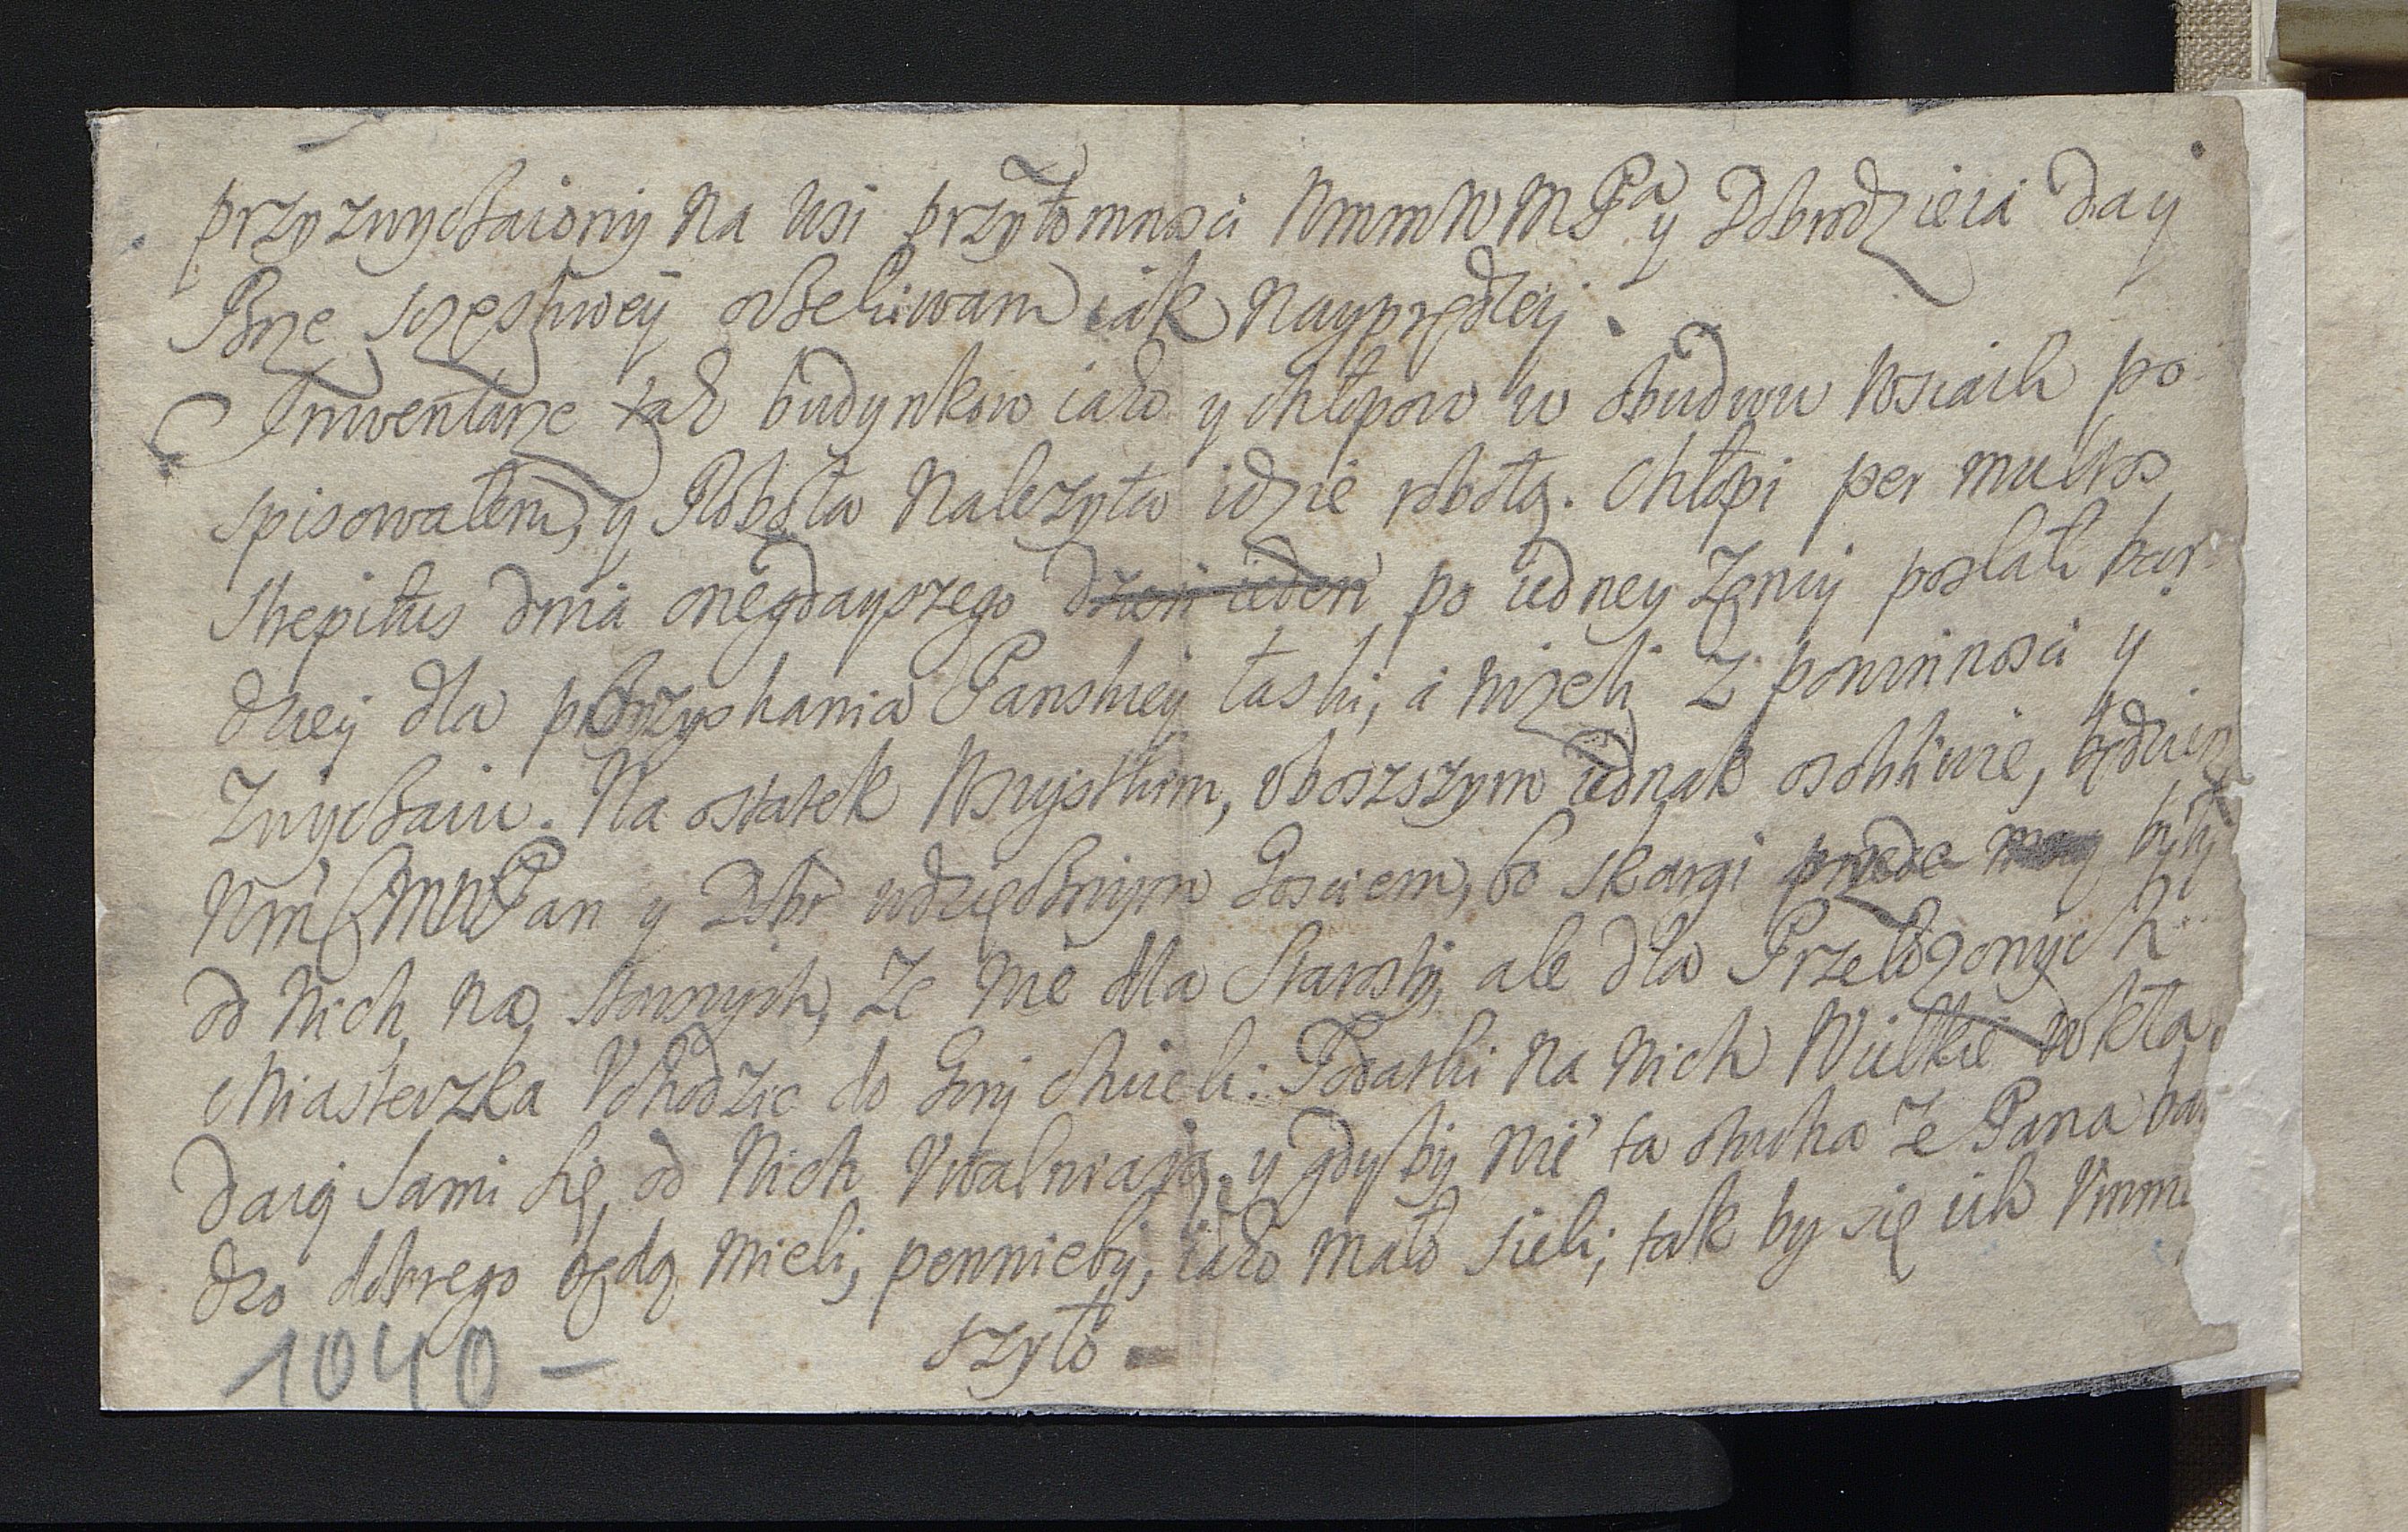 przyzwyczaiony na wsi przytomnosci WmmWMPa y Dobrodzieia day
Boze szczęsliwey oczekiwam iak nayprędzey.
Inwentarze tak budynkow iako y chłopow w obudwu wsiach po
spisowałem, y Robota nalezyta idzie robotą. Chłopi per multos
strepitus dnia onegdayszego dzien ieden po iedney Zency posłali bar
dziey dla pozyskania Panskiey łaski, a nizeli z powinnosci y
Zwyczaiu. Na ostatek wszystkim, uboszszym iednak osobliwie, będziesz
WmMWPan y Dobr wdzięcznym Gosciem, bo skargi przede mną były
od nich na starszych, ze nie dla Starosty ale dla Przełozonych
Miasteczka Vchodzic do Gory chcieli: Podatki na nich Wielkie wkła
daią sami się od nich Vwalniaią, y gdyby nie ta otucha ze Pana bar
dzo dobrego będą mieli, pewnieby, iako mało sieli; tak by się ich Vmnie
szyło -
1040 -